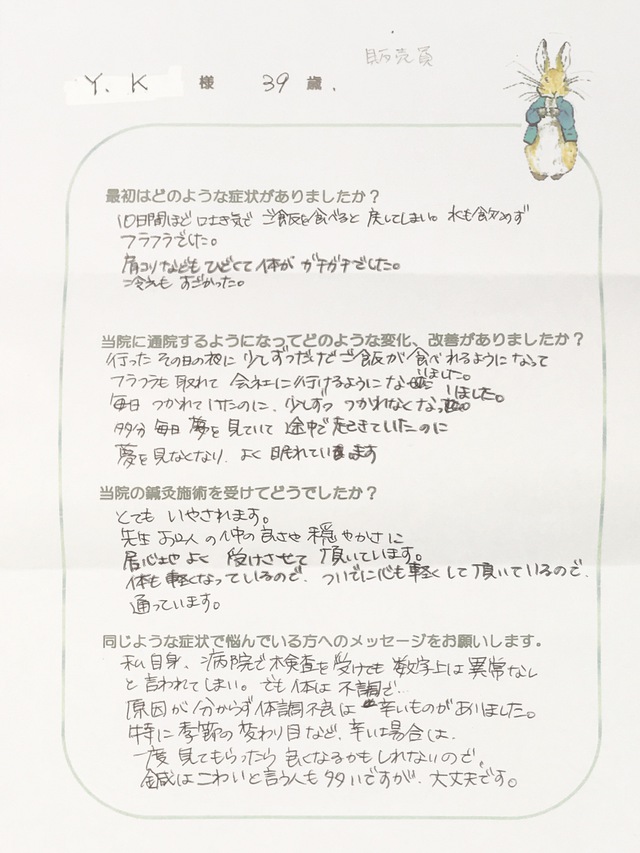 販売員
Y. K 様 39 歳.
最初はどのような症状がありましたか？
10日間ほど 吐き気で ご飯を食べると 戻してしまい。水も飲めず
フラフラでした。
肩コリなども ひどくて 体が ガチガチでした。
冷えも すごかった。
当院に通院するようになってどのような変化、改善がありましたか？
行った その日の夜に 少しずつだけど ご飯が 食べれるようになって
いました。
フラフラも 取れて 会社に 行けるようにな いました。
毎日 つかれていたのに、少しずつ つかれなくなった。
多分 毎日 夢を 見ていて 途中で 起きていたのに
夢を 見なくなり、よく 眠れています
当院の鍼灸施術を受けてどうでしたか？
とても いやされます。
先生 お2人 の仲の 良さや 穏やかさに
居心地 よく 受けさせて 頂いています。
体も 軽くなっているので、ついでに心も 軽く して 頂いているので、
通っています。
同じような症状で悩んでいる方へのメッセージをお願いします。
私自身、病院で検査を 受けても 数字上は 異常なし
と 言われてしまい。でも 体は 不調で…
原因が 分からず 体調不良は 辛いものがありました。
特に 季節の 変わり目など、辛い場合は、
一度 見てもらったら 良くなるかもしれないので、
鍼は こわいと言う人も 多いですが、大丈夫です。